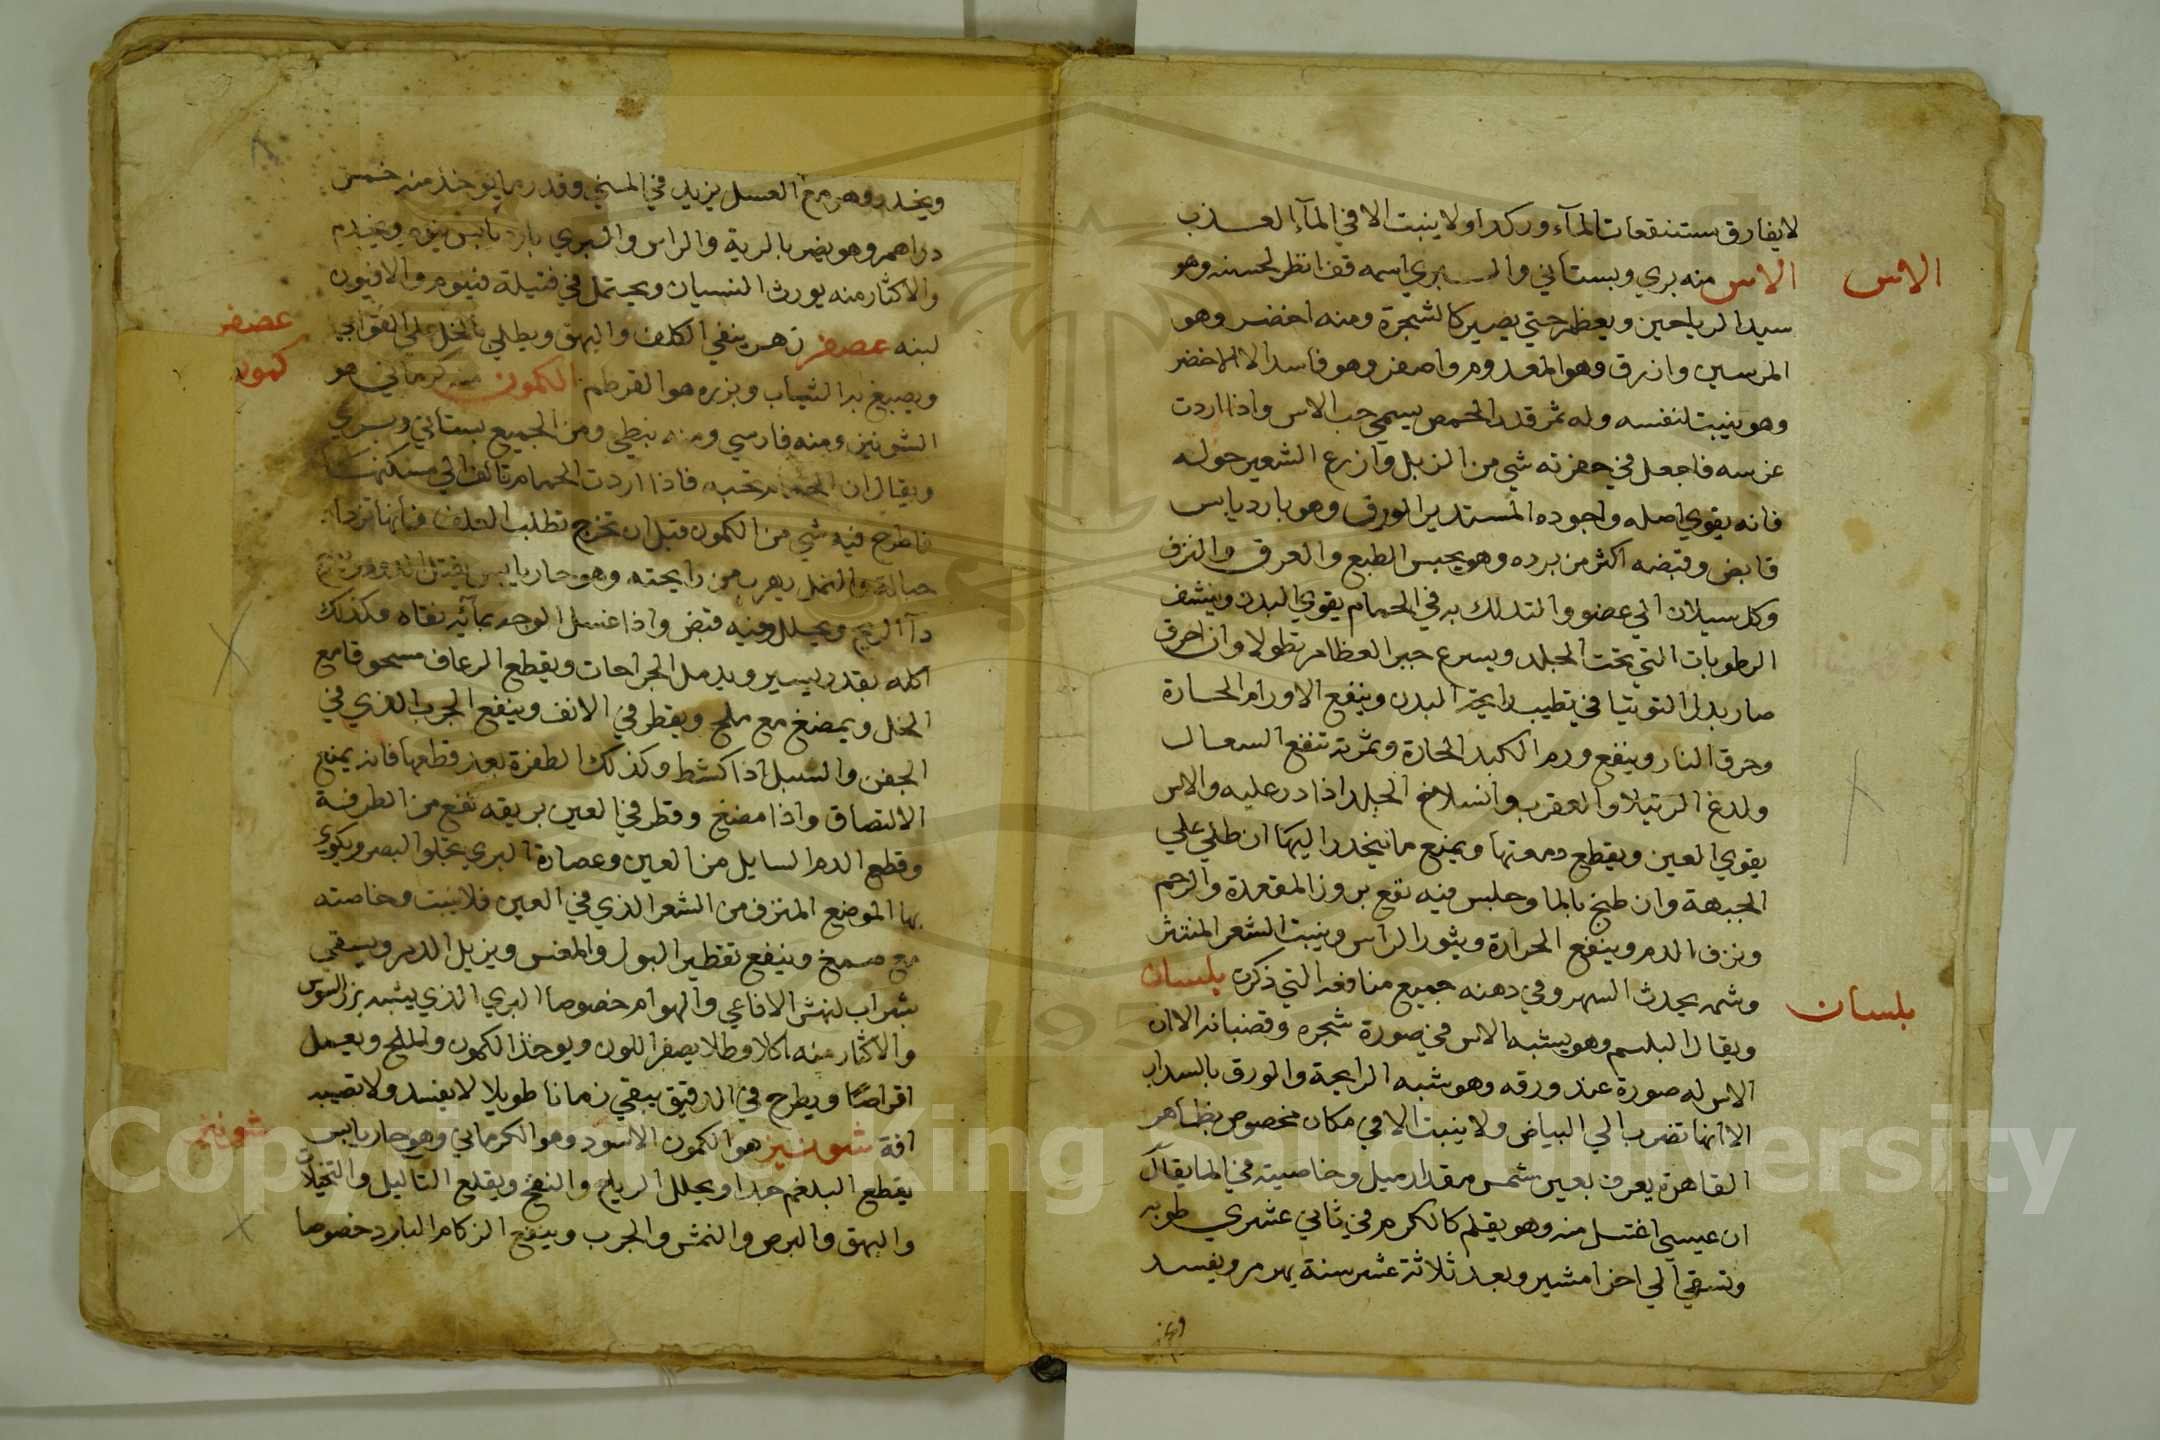 لايفارق مستنقعات المآء وركداو لا ينبت الا في المآء العذب
الاس
الاس منه بري وبستاني والبري اسمه قف انظر لحسنه وهو
سيد الرياحين ويعظم حتي يصير كالشجرة ومنه اخضر وهو
المرسين وازرق وهو المعدوم واصفر وهو فاسد الا الاخضر
وهو ينبت لنفسه وله ثمر قدر الحمص يسمي حب الاس واذا اردت
غرسه فاجعل في حفرته شي من الزبل وازرع الشعير حوله
فانه يقوي اصله واجوده المستدير الورق وهو بارد يابس
قابض وقبضه اكثر من برده وهو يحبس الطبع والعرق والنزف
وكل سيلان الي عضو والتدلك به في الحمام يقوي البدن وينشف
الرطوبات التي تحت الجلد ويسرع جبر العظام نطولا وان احرق
صار بدل التوتيا في تطييب رايحة البدن وينفع الاورام الحارة
وحرق النار وينفع ورم الكبد الحارة وثمرته تنفع السعال
ولدغ الرتيلا والعقرب وانسلاخ الجلد اذا در عليه والاس
يقوي العين ويقطع دمعتها ويمنع ما يتحدر اليها ان طلي علي
الجبهة وان طبخ بالما وجلس فيه نفع بروز المقعدة والرحم
ونزف الدم وينفع الحرارة وبثور الراس وينبت الشعر المنتثر
وشمه يحدث السهر وفي دهنه جميع منافعه التي ذكرت بلسان
بلسان
ويقال البلسم وهو يشبه الاس في صورة شجره وقضبانه الا ان
الاس له صورة عند ورقه وهو شبه الرايحة والورق بالسداب
الا انها تضرب الي البياض ولا ينبت الا في مكان مخصوص بظاهر
القاهرة يعرف بعين شمس مقدار ميل وخاصيته في الما يقال
ان عيسي اغتسل منه وهو يقلم كالكرم في ثاني عشري طوبه
وتسقي الي اخر امشير وبعد ثلاثة عشر سنة يهرم ويفسد
ويخدر وهو مع العسل يزيد في المني وقدر ما يوخذ منه خمس
دراهم وهو يضر بالرية والراس والبري بارد يابس ينوم ويخدم
والاكثار منه يورث النسيان ويحتمل في فتيلة فينوم والافيون
عصفر
لبنه عصفر زهره ينفي الكلف والبهق ويطلي بالخل علي القوابي
كمون
ويصبغ به الثياب وبزره هو القرطم الكمون منه كرماني هو
الشونيز ومنه فارسي ومنه نبطي ومن الجميع بستاني وبري
ويقال ان الحمام تحبه فاذا اردت الحمام تالف الي مسكنها
فاطرح فيه شي من الكمون قبل ان تخرج تطلب العلف فانها تزداد
حبا له والنمل يهرب من رايحته وهو حار يابس يقتل الدود
دآ الريح ويحلل وفيه قبض واذا غسل الوجه بمآئه نقاه وكذلك
اكله بقدر يسير ويدمل الجراحات ويقطع الرعاف مسحوقا مع
الخل ويمضغ مع ملح ويقطر في الانف وينفع الجرب الذي في
الجفن والسبل اذا كشط وكذلك الظفرة بعد قطعها فانه يمنع
الالتصاق واذا مضغ وقطر في العين بريقه نفع من الطرفة
وقطع الدم السايل من العين وعصارة البري تجلوا البصر ويكوي
بها الموضع المنزف من الشعر الذي في العين فلا ينبت وخاصته
مع صمغ وينفع تقطير البول والمغس ويزيل الدم ويسقي
بشراب لنهش الافاعي والهوام خصوصا البري الذي يشبه بزر السوس
والاكثار منه اكلا وطلا يصفر اللون ويوخذ الكمون والملح ويعمل
اقراصا ويطرح في الدقيق يبقي زمانا طويلا لا يفسد ولا تصيبه
شونيز
افة شونيز هو الكمون الاسود وهو الكرماني وهو حار يابس
يقطع البلغم جدا ويحلل الرياح والنفخ ويقلع التاليل والتخيلات
والبهق والبرص والنمش والجرب وينفع الزكام البارد خصوصا
Copyright © King Saud University